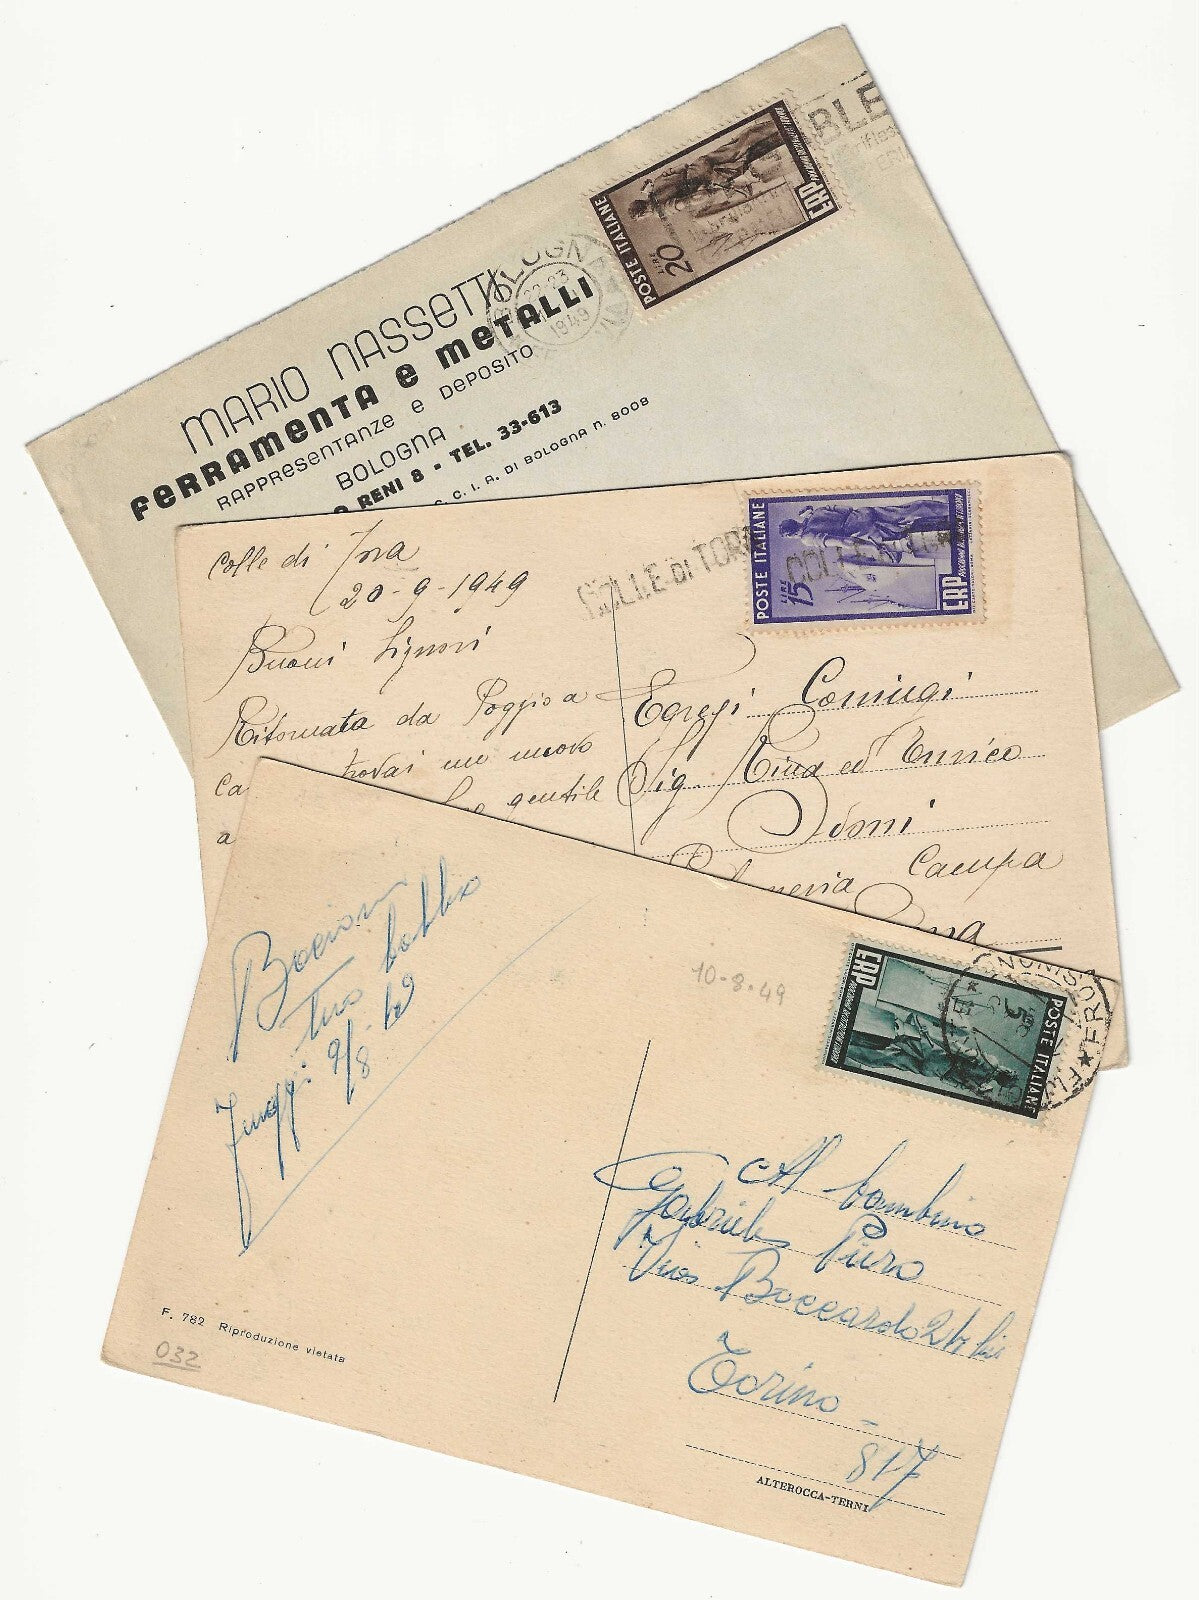 BLE
POSTE ITALIANE
LIRE 20
ERP
BOLOGNA
22-23
1949
MARIO NASSETTI
FERRAMENTA E METALLI
RAPPRESENTANZE E DEPOSITO
BOLOGNA
RENI 8 - TEL. 33-613
C. C. I. A. DI BOLOGNA N. 8008
Colle di Tora
20-9-1949
COLLE DI TORA
POSTE ITALIANE
LIRE 15
ERP
Buoni Signori
Ritornata da Poggio a
trovai un nuovo
gentile
a
Egregi Coniugi
Sig. Rina ed Enrico
Campa
10-8-49
ERP
POSTE ITALIANE
LIRE 5
Bacioni
tuo babbo
9/8-49
Al bambino
Gabriele Piero
Boccardo 24 bis
Torino -
817
F. 782 Riproduzione vietata
032
ALTEROCCA-TERNI